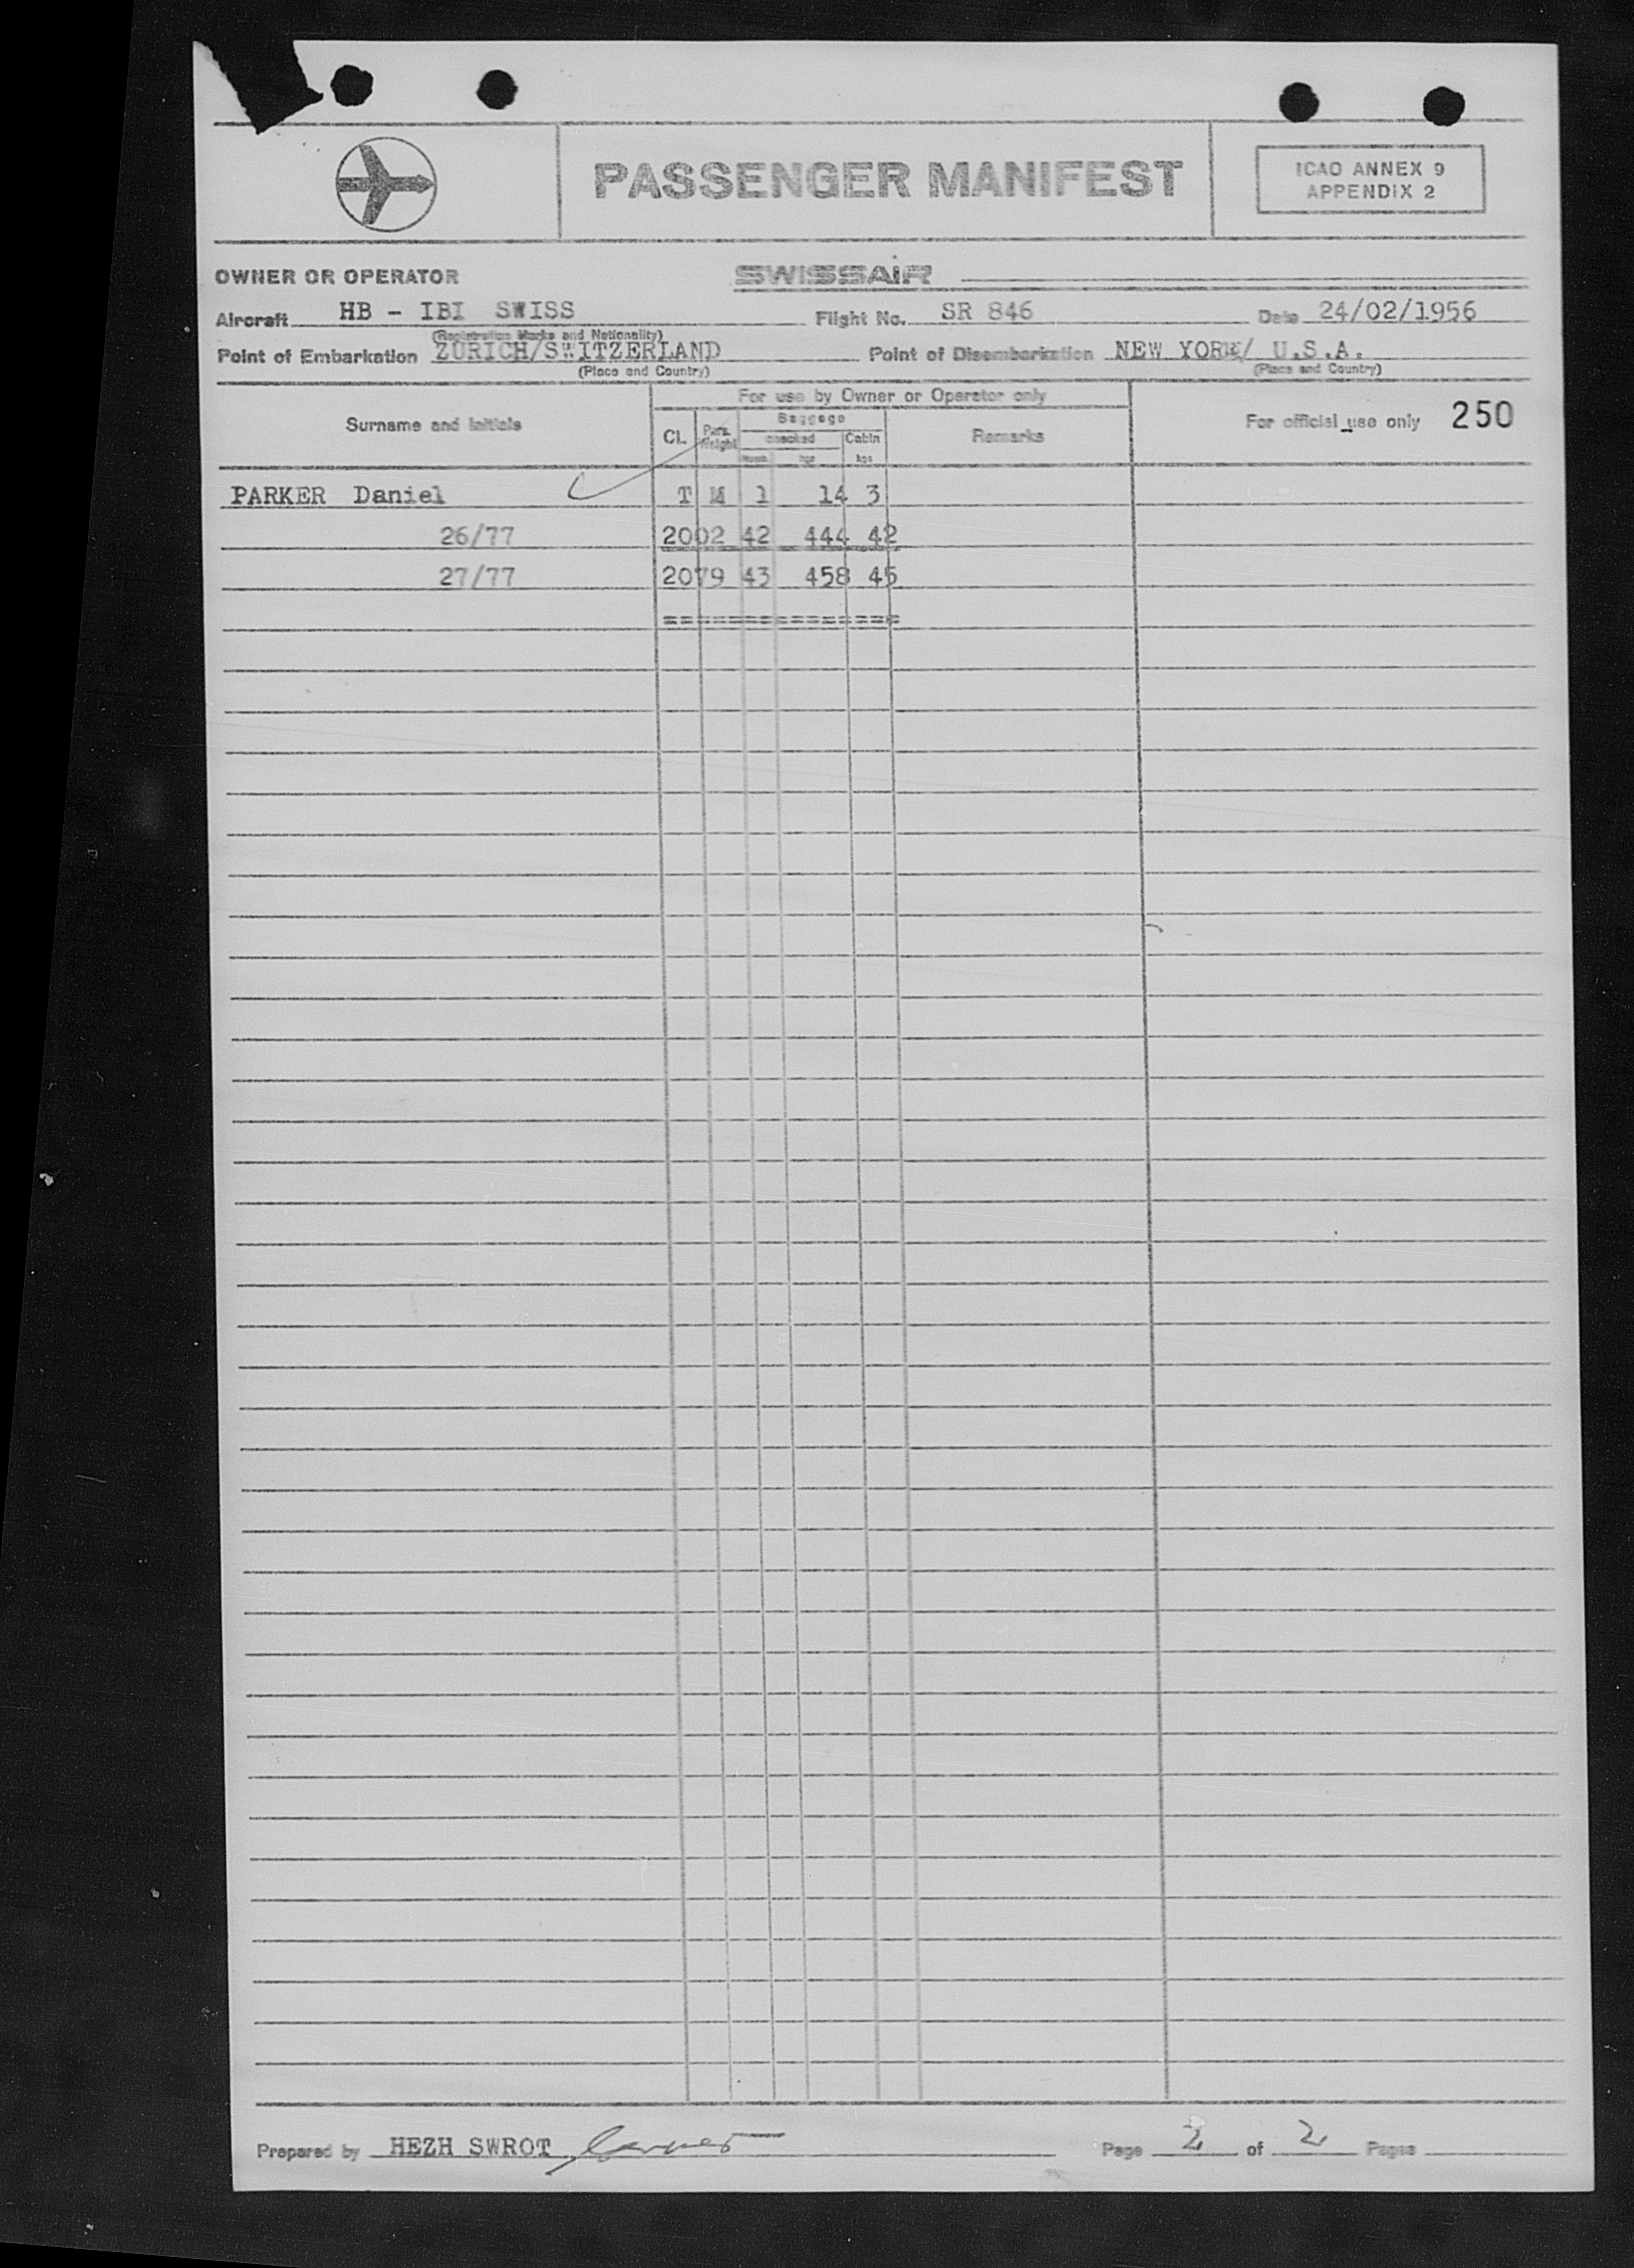 PASSENGER MANIFEST
ICAO ANNEX 9
APPENDIX 2
OWNER OR OPERATOR SWISSAIR
Aircraft HB - IBI SWISS Flight No. SR 846 Date 24/02/1956
(Registration Marks and Nationality)
Point of Embarkation ZURICH/SWITZERLAND Point of Disembarkation NEW YORK/ U.S.A.
(Place and Country) (Place and Country)
For use by Owner or Operator only
Surname and Initials Cl. Pass. Weight Baggage Remarks For official use only 250
checked Cabin
kgs kgs
PARKER Daniel T M 1 14 3
26/77 2002 42 444 42
27/77 2079 43 458 45
==================
Prepared by HEZH SWROT Page 2 of 2 Pages